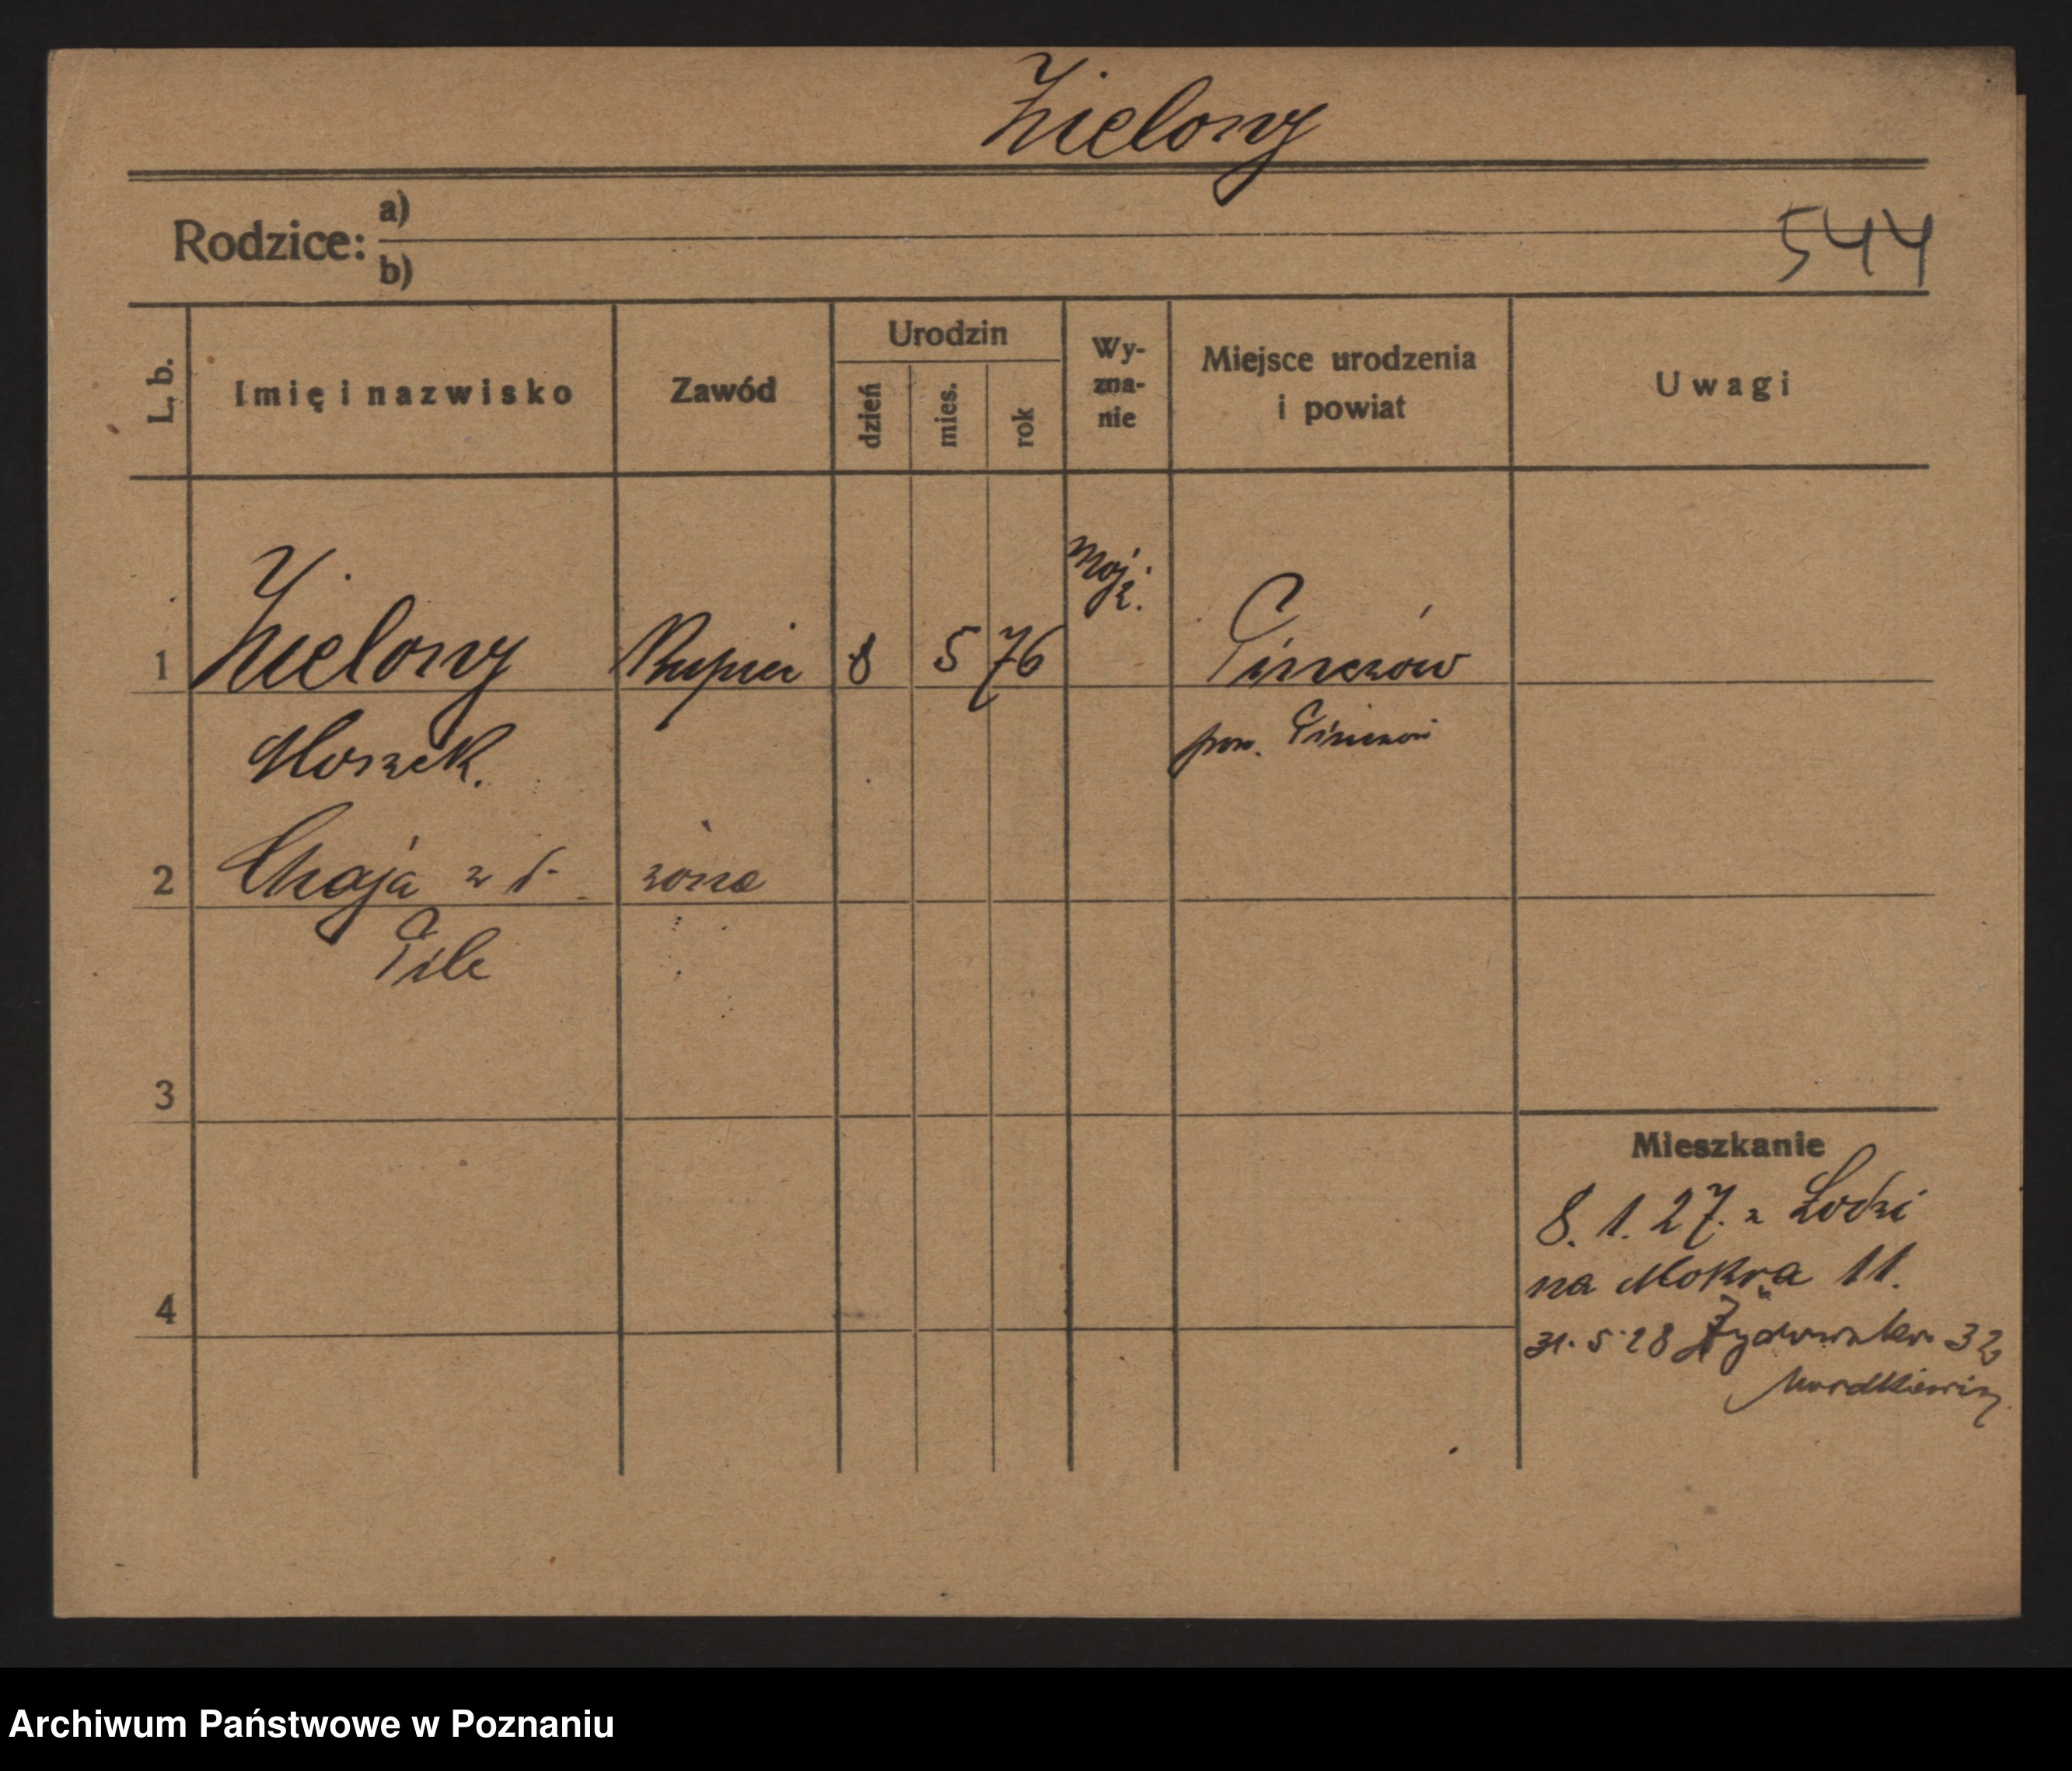 Zielony
Rodzice: a)
b)
544
L. b.
Imię i nazwisko
Zawód
Urodzin
dzień
mies.
rok
Wy-
zna-
nie
Miejsce urodzenia
i powiat
Uwagi
1 Zielony Kupiec 8 5 76 Mojż. Pinczów
Moszek. pow. Pinczów
2 Chaja z d. żona
Pile
3
Mieszkanie
8. 1. 27. z Łodzi
na Mokrą 11.
4
31. 5. 28 Żydowska 32
Mordkiewicz
Archiwum Państwowe w Poznaniu